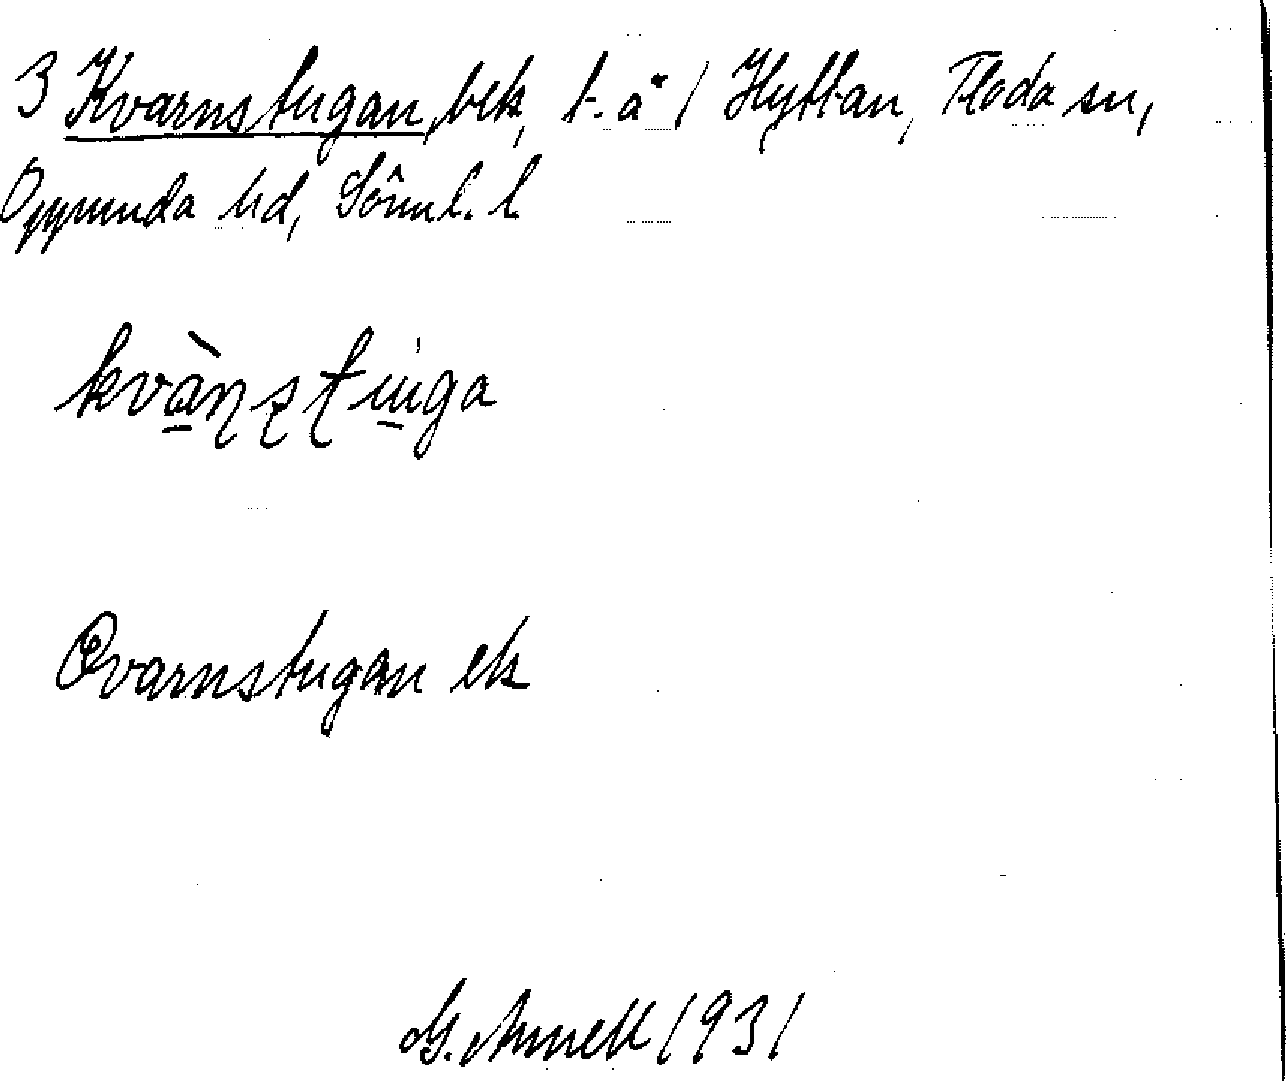 3 Kvarnstugan, bek, t. å 1 Hyttan, Floda sn,
Oppunda hd, Sörml. l.
kvàṇṣṭuga
Qvarnstugan ek
G. Annell 1931